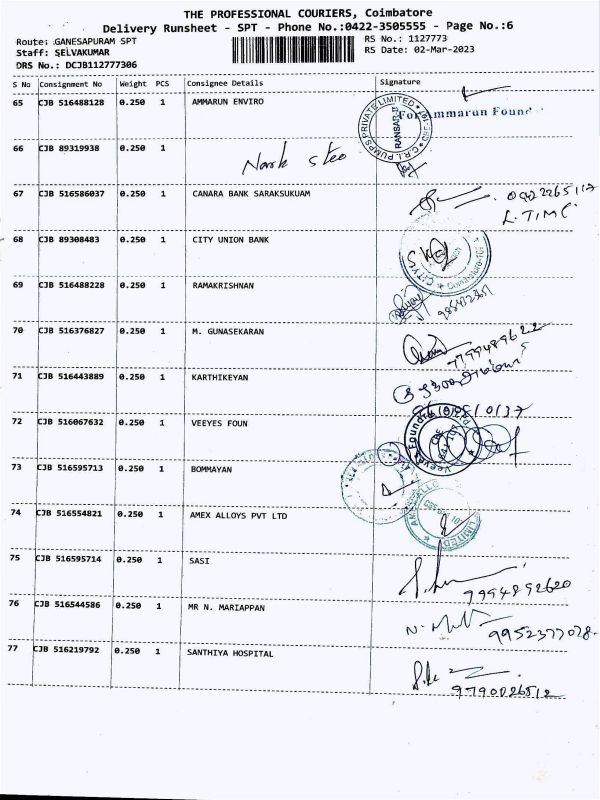 THE PROFESSIONAL COURIERS, Coimbatore
Delivery Runsheet - SPT - Phone No.:0422-3505555 - Page No.:6
Route: GANESAPURAM SPT RS No.: 1127773
Staff: SELVAKUMAR RS Date: 02-Mar-2023
DRS No.: DCJB112777306
S No Consignment No Weight PCS Consignee Details Signature
65 CJB 516488128 0.250 1 AMMARUN ENVIRO
For Ammarun Found
C.R.I. PUMPS PRIVATE LIMITED
66 CJB 89319938 0.250 1
67 CJB 516586037 0.250 1 CANARA BANK SARAKSUKUAM
68 CJB 89308483 0.250 1 CITY UNION BANK
69 CJB 516488228 0.250 1 RAMAKRISHNAN
70 CJB 516376827 0.250 1 M. GUNASEKARAN
71 CJB 516443889 0.250 1 KARTHIKEYAN
72 CJB 516067632 0.250 1 VEEYES FOUN
73 CJB 516595713 0.250 1 BOMMAYAN
74 CJB 516554821 0.250 1 AMEX ALLOYS PVT LTD
LIMITED
75 CJB 516595714 0.250 1 SASI
9994892620
76 CJB 516544586 0.250 1 MR N. MARIAPPAN
9952377078
77 CJB 516219792 0.250 1 SANTHIYA HOSPITAL
9790026512